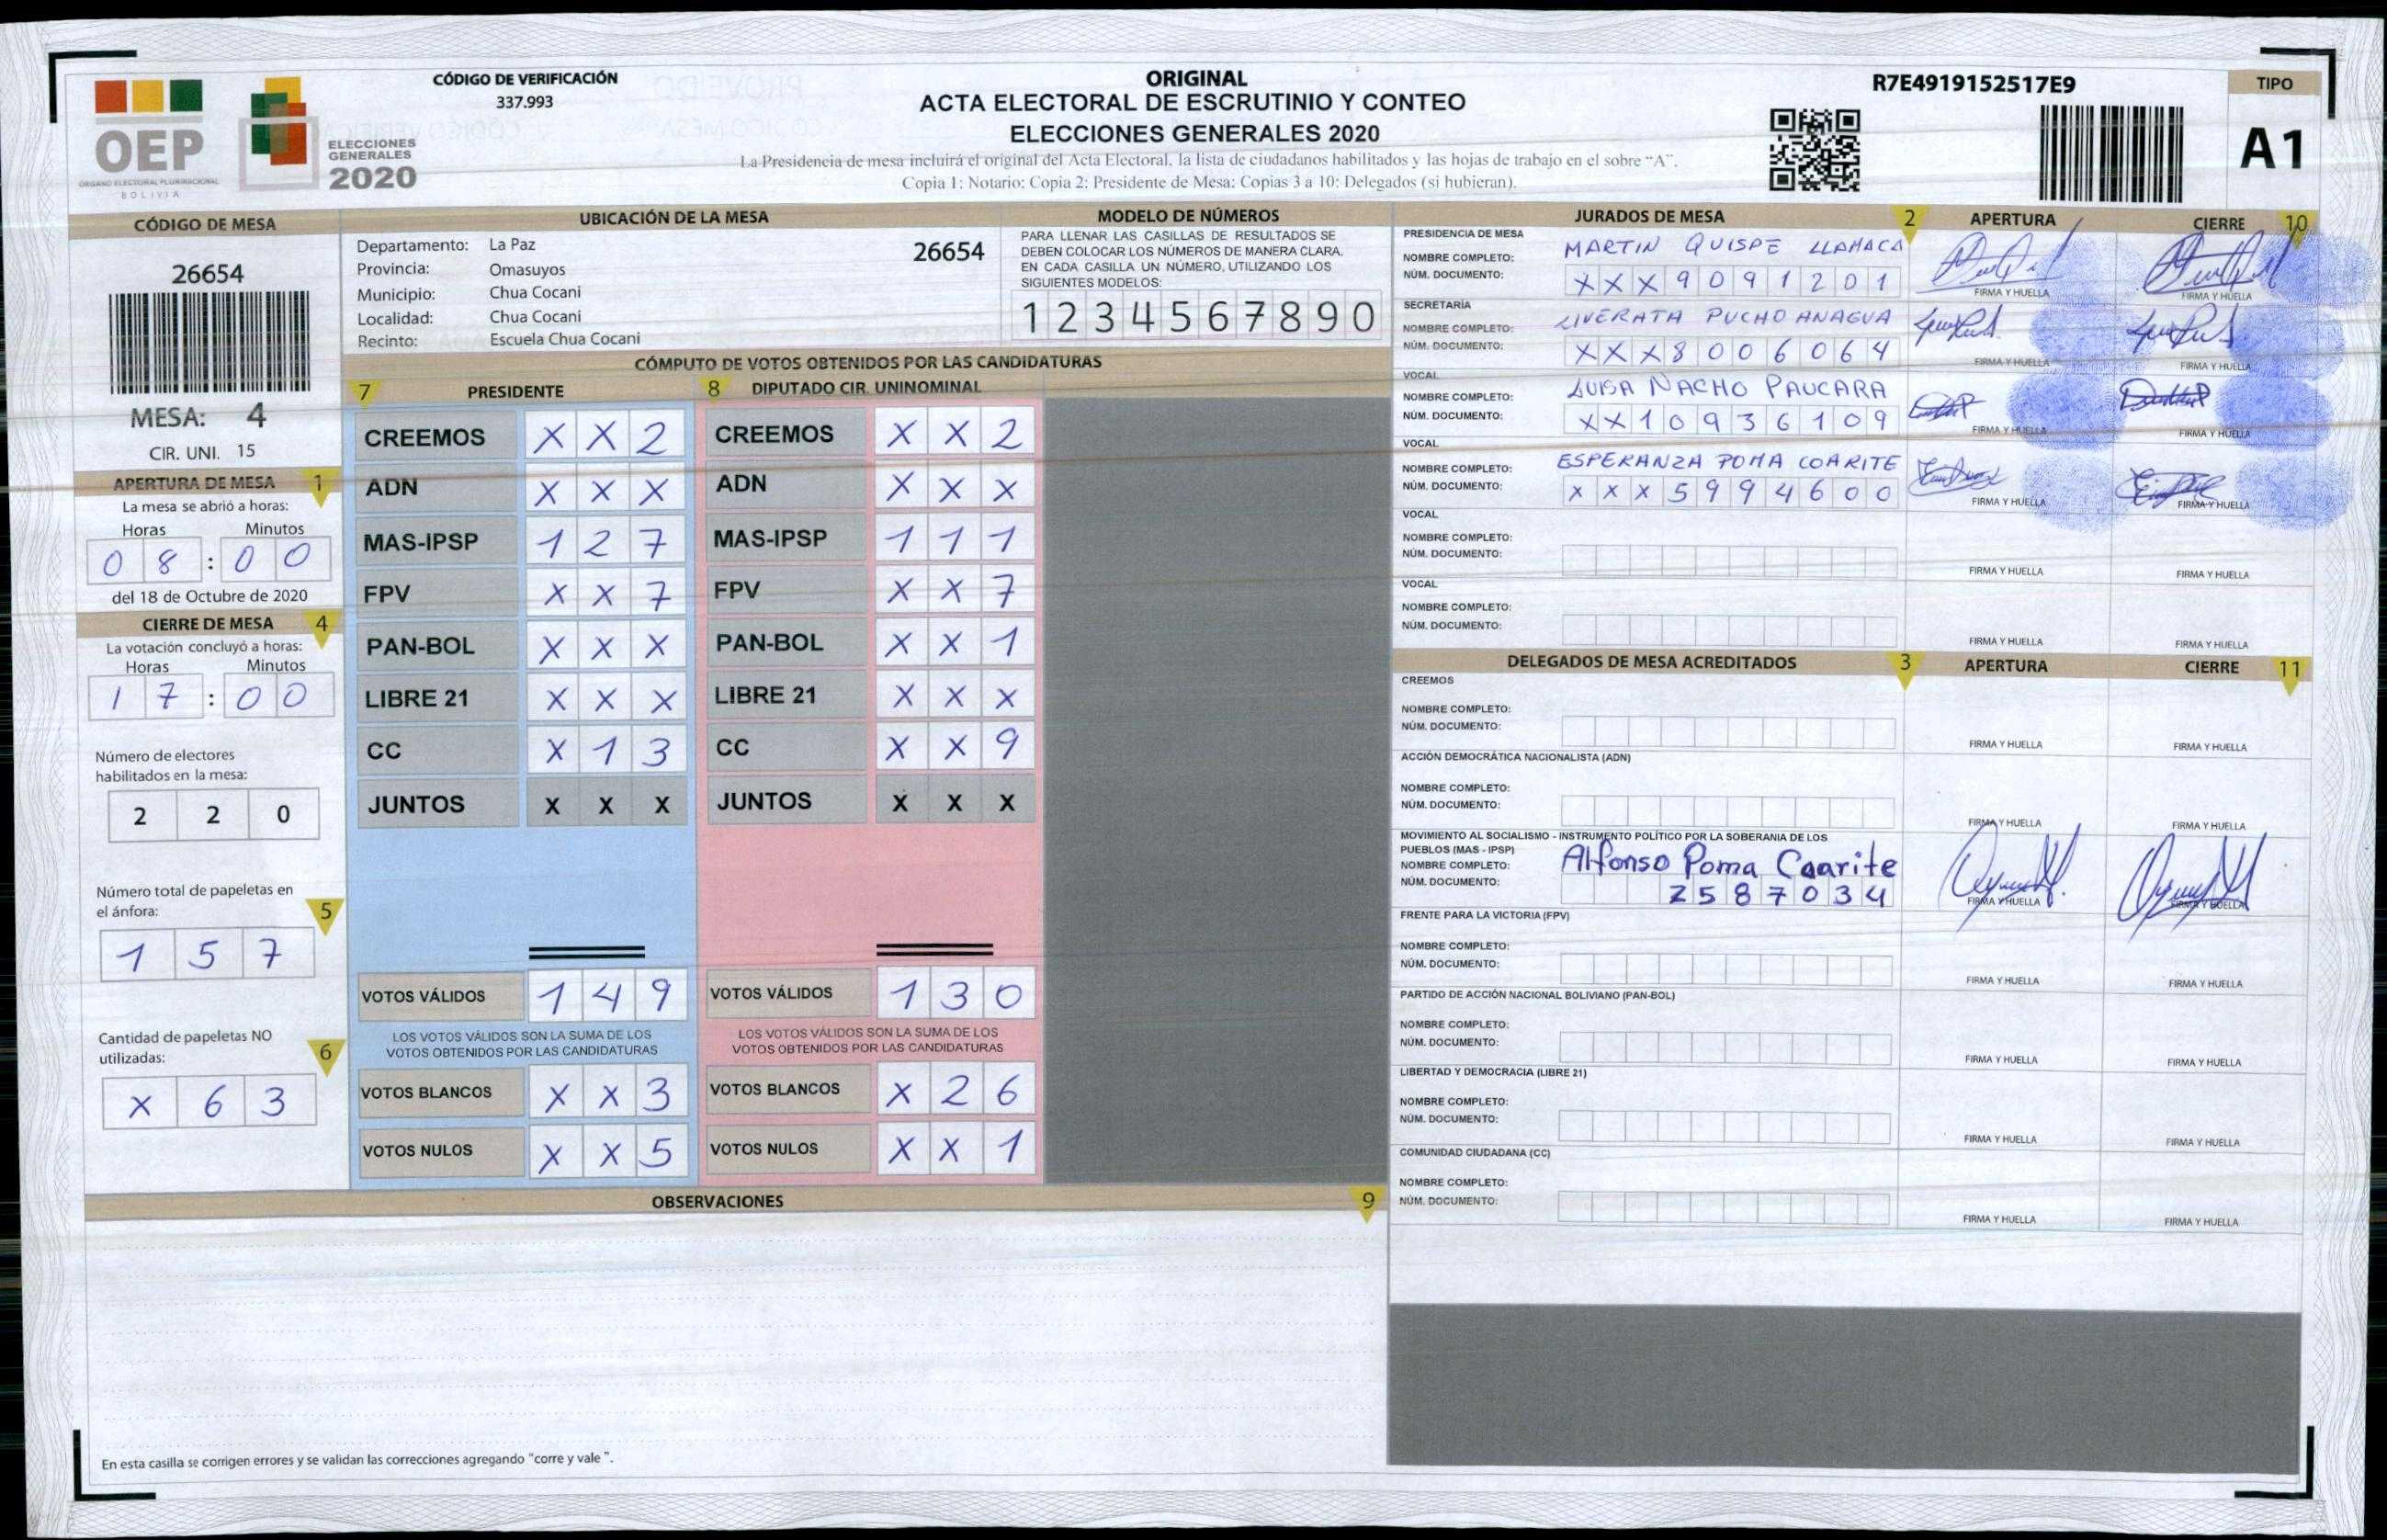 OEP
ÓRGANO ELECTORAL PLURINACIONAL
BOLIVIA
ELECCIONES
GENERALES
2020
CÓDIGO DE VERIFICACIÓN
337.993
ORIGINAL
ACTA ELECTORAL DE ESCRUTINIO Y CONTEO
ELECCIONES GENERALES 2020
La Presidencia de mesa incluirá el original del Acta Electoral, la lista de ciudadanos habilitados y las hojas de trabajo en el sobre “A”.
Copia 1: Notario: Copia 2: Presidente de Mesa: Copias 3 a 10: Delegados (si hubieran).
R7E4919152517E9
TIPO
A1
CÓDIGO DE MESA
26654
MESA: 4
CIR. UNI. 15
APERTURA DE MESA 1
La mesa se abrió a horas:
Horas Minutos
0 8 : 0 0
del 18 de Octubre de 2020
CIERRE DE MESA 4
La votación concluyó a horas:
Horas Minutos
1 7 : 0 0
Número de electores
habilitados en la mesa:
2 2 0
Número total de papeletas en
el ánfora: 5
1 5 7
Cantidad de papeletas NO
utilizadas: 6
X 6 3
UBICACIÓN DE LA MESA
Departamento: La Paz 26654
Provincia: Omasuyos
Municipio: Chua Cocani
Localidad: Chua Cocani
Recinto: Escuela Chua Cocani
MODELO DE NÚMEROS
PARA LLENAR LAS CASILLAS DE RESULTADOS SE
DEBEN COLOCAR LOS NÚMEROS DE MANERA CLARA.
EN CADA CASILLA UN NÚMERO, UTILIZANDO LOS
SIGUIENTES MODELOS:
1 2 3 4 5 6 7 8 9 0
CÓMPUTO DE VOTOS OBTENIDOS POR LAS CANDIDATURAS
7 PRESIDENTE
CREEMOS X X 2
ADN X X X
MAS-IPSP 1 2 7
FPV X X 7
PAN-BOL X X X
LIBRE 21 X X X
CC X 1 3
JUNTOS X X X
VOTOS VÁLIDOS 1 4 9
LOS VOTOS VÁLIDOS SON LA SUMA DE LOS
VOTOS OBTENIDOS POR LAS CANDIDATURAS
VOTOS BLANCOS X X 3
VOTOS NULOS X X 5
8 DIPUTADO CIR. UNINOMINAL
CREEMOS X X 2
ADN X X X
MAS-IPSP 1 1 1
FPV X X 7
PAN-BOL X X 1
LIBRE 21 X X X
CC X X 9
JUNTOS X X X
VOTOS VÁLIDOS 1 3 0
LOS VOTOS VÁLIDOS SON LA SUMA DE LOS
VOTOS OBTENIDOS POR LAS CANDIDATURAS
VOTOS BLANCOS X 2 6
VOTOS NULOS X X 1
OBSERVACIONES 9
En esta casilla se corrigen errores y se validan las correcciones agregando “corre y vale ”.
JURADOS DE MESA 2 APERTURA CIERRE 10
PRESIDENCIA DE MESA
NOMBRE COMPLETO: MARTIN QUISPE LLAMACA
NÚM. DOCUMENTO: X X X 9 0 9 1 2 0 1
FIRMA Y HUELLA FIRMA Y HUELLA
SECRETARÍA
NOMBRE COMPLETO: LIVERATA PUCHO ANAGUA
NÚM. DOCUMENTO: X X X 8 0 0 6 0 6 4
FIRMA Y HUELLA FIRMA Y HUELLA
VOCAL
NOMBRE COMPLETO: LUISA NACHO PAUCARA
NÚM. DOCUMENTO: X X 1 0 9 3 6 1 0 9
FIRMA Y HUELLA FIRMA Y HUELLA
VOCAL
NOMBRE COMPLETO: ESPERANZA POMA COARITE
NÚM. DOCUMENTO: X X X 5 9 9 4 6 0 0
FIRMA Y HUELLA FIRMA Y HUELLA
VOCAL
NOMBRE COMPLETO:
NÚM. DOCUMENTO:
FIRMA Y HUELLA FIRMA Y HUELLA
VOCAL
NOMBRE COMPLETO:
NÚM. DOCUMENTO:
FIRMA Y HUELLA FIRMA Y HUELLA
DELEGADOS DE MESA ACREDITADOS 3 APERTURA CIERRE 11
CREEMOS
NOMBRE COMPLETO:
NÚM. DOCUMENTO:
FIRMA Y HUELLA FIRMA Y HUELLA
ACCIÓN DEMOCRÁTICA NACIONALISTA (ADN)
NOMBRE COMPLETO:
NÚM. DOCUMENTO:
FIRMA Y HUELLA FIRMA Y HUELLA
MOVIMIENTO AL SOCIALISMO - INSTRUMENTO POLÍTICO POR LA SOBERANIA DE LOS
PUEBLOS (MAS - IPSP)
NOMBRE COMPLETO: Alfonso Poma Coarite
NÚM. DOCUMENTO: 2 5 8 7 0 3 4
FIRMA Y HUELLA FIRMA Y HUELLA
FRENTE PARA LA VICTORIA (FPV)
NOMBRE COMPLETO:
NÚM. DOCUMENTO:
FIRMA Y HUELLA FIRMA Y HUELLA
PARTIDO DE ACCIÓN NACIONAL BOLIVIANO (PAN-BOL)
NOMBRE COMPLETO:
NÚM. DOCUMENTO:
FIRMA Y HUELLA FIRMA Y HUELLA
LIBERTAD Y DEMOCRACIA (LIBRE 21)
NOMBRE COMPLETO:
NÚM. DOCUMENTO:
FIRMA Y HUELLA FIRMA Y HUELLA
COMUNIDAD CIUDADANA (CC)
NOMBRE COMPLETO:
NÚM. DOCUMENTO:
FIRMA Y HUELLA FIRMA Y HUELLA